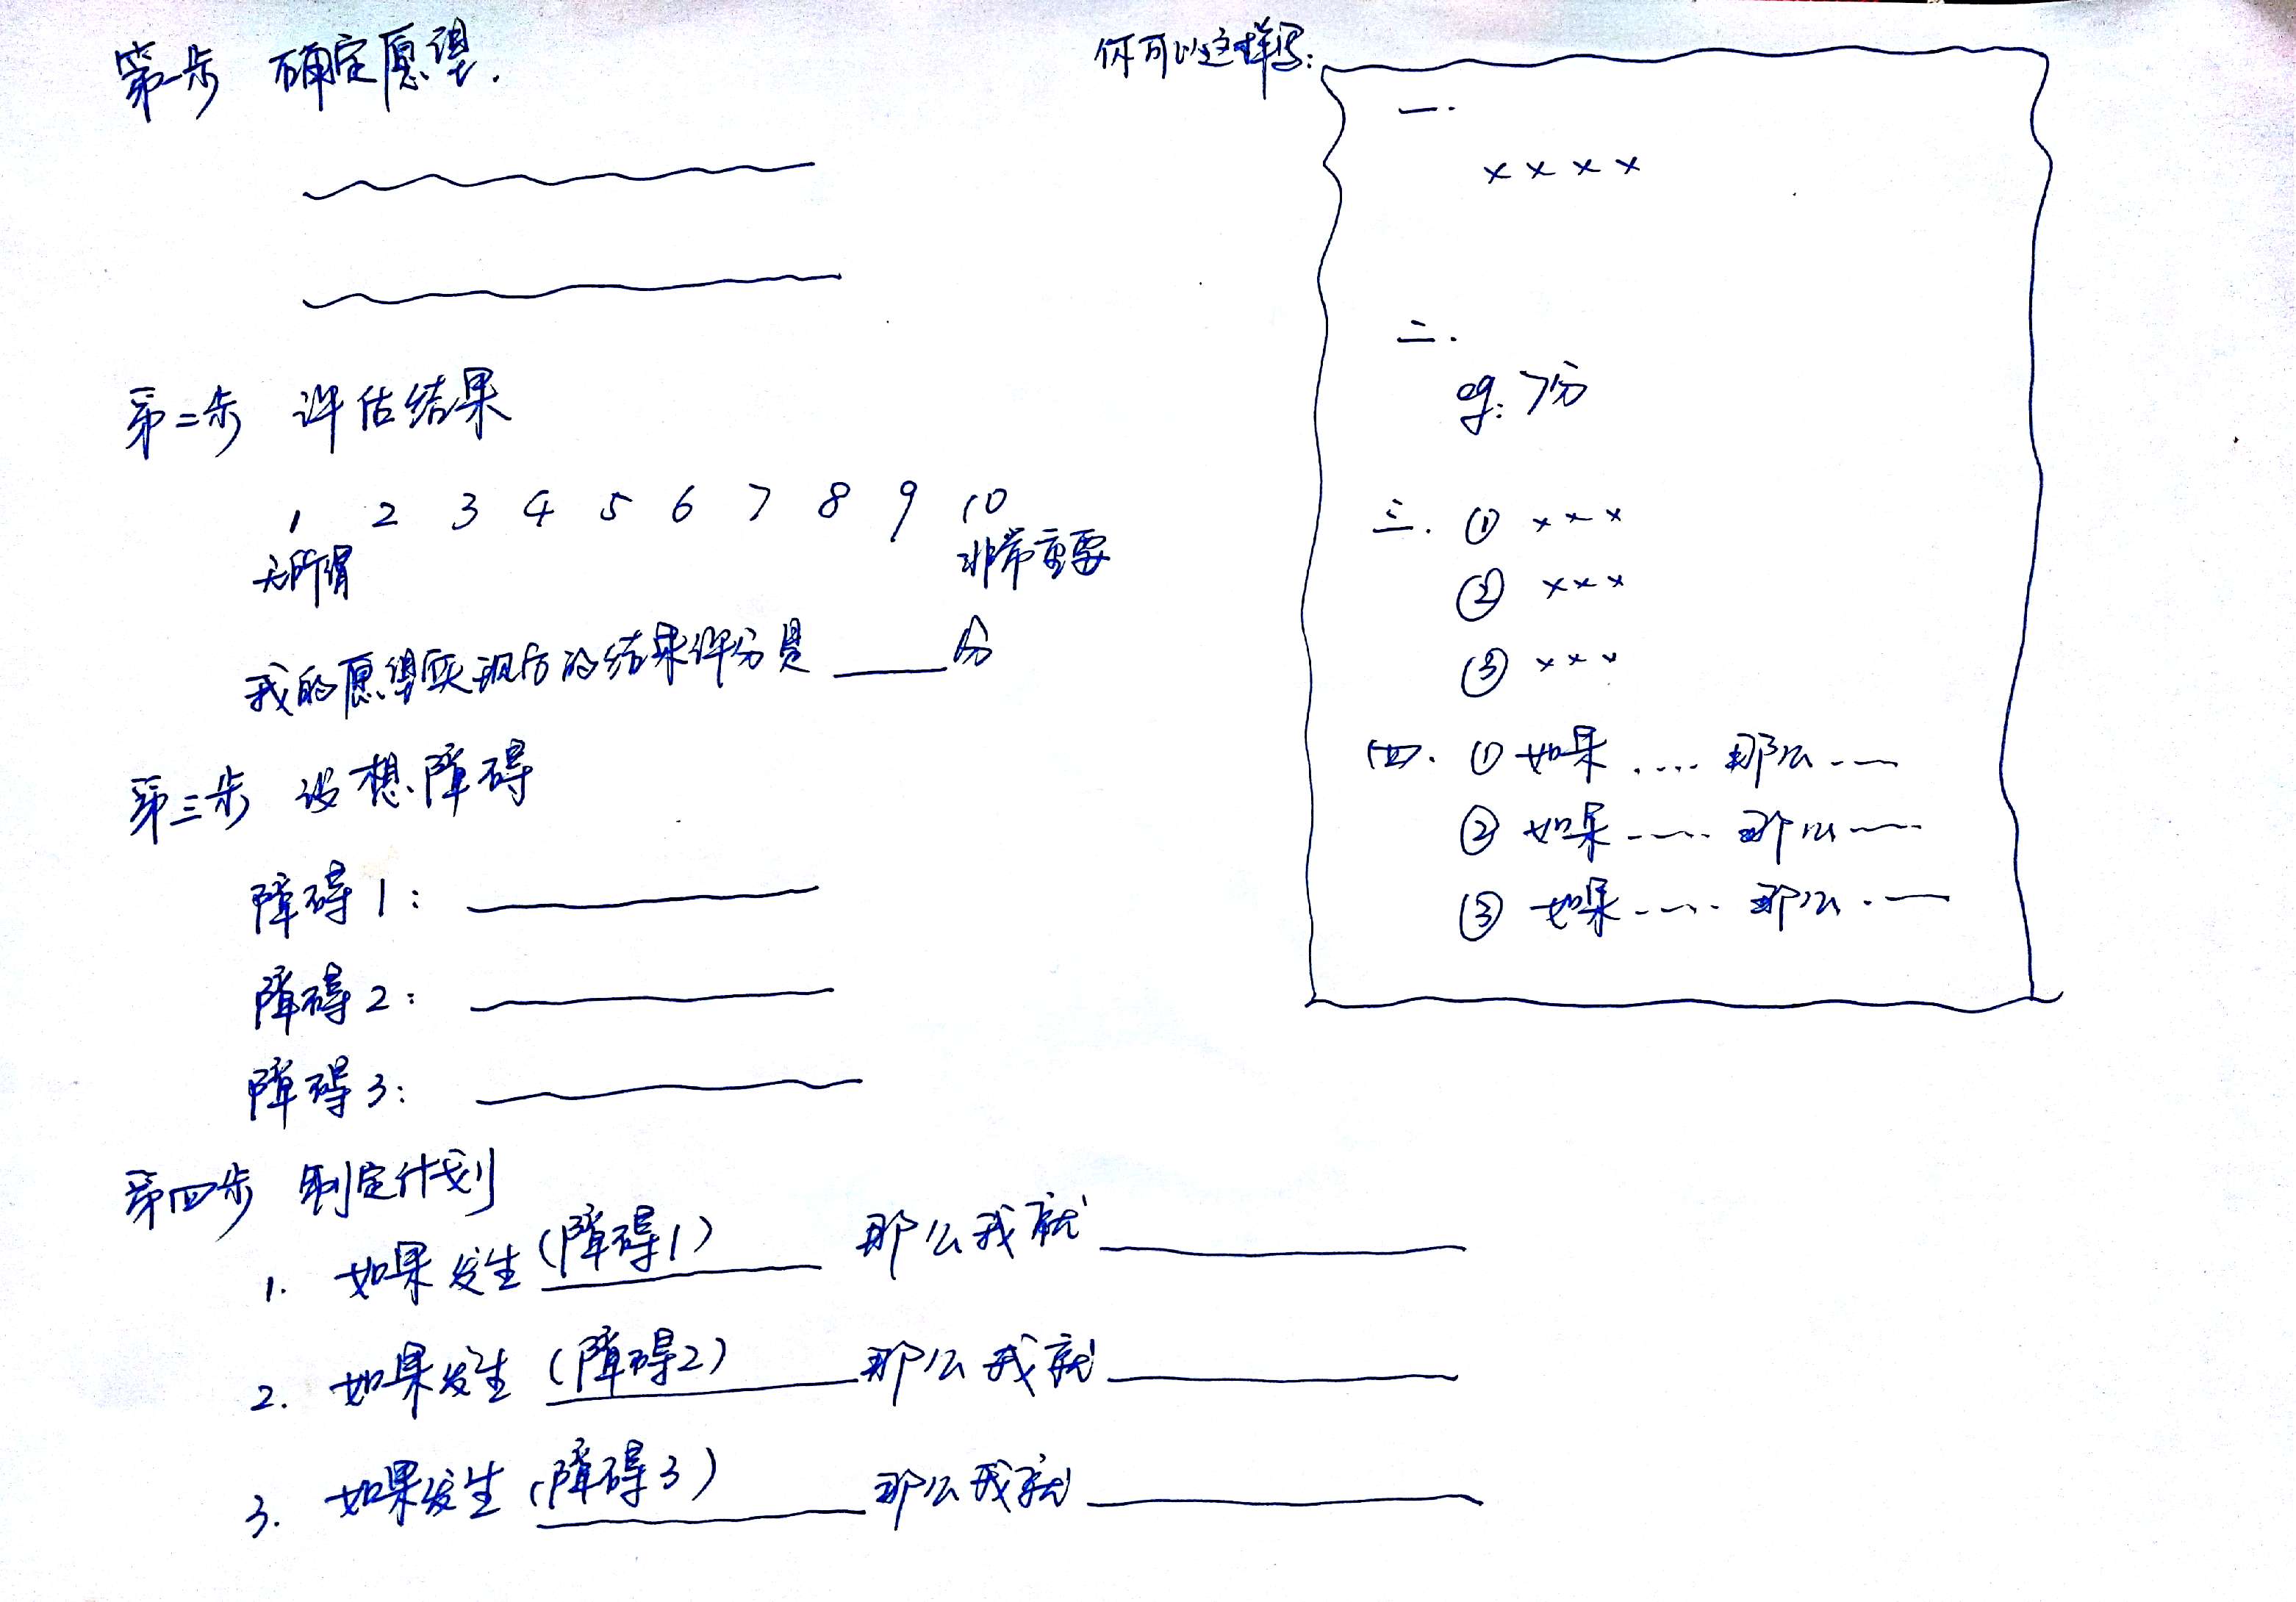 第一步 确定愿望.
第二步 评估结果
1 2 3 4 5 6 7 8 9 10
无所谓 非常重要
我的愿望实现后的结果评分是____分
第三步 设想障碍
障碍1:
障碍2:
障碍3:
第四步 制定计划
1. 如果发生(障碍1) 那么我就
2. 如果发生(障碍2) 那么我就
3. 如果发生(障碍3) 那么我就
你可以这样写:
一.
××××
二.
eg: 7分
三. ① ×××
② ×××
③ ×××
四. ① 如果 .... 那么 ...
② 如果 .... 那么 ...
③ 如果 .... 那么 ...